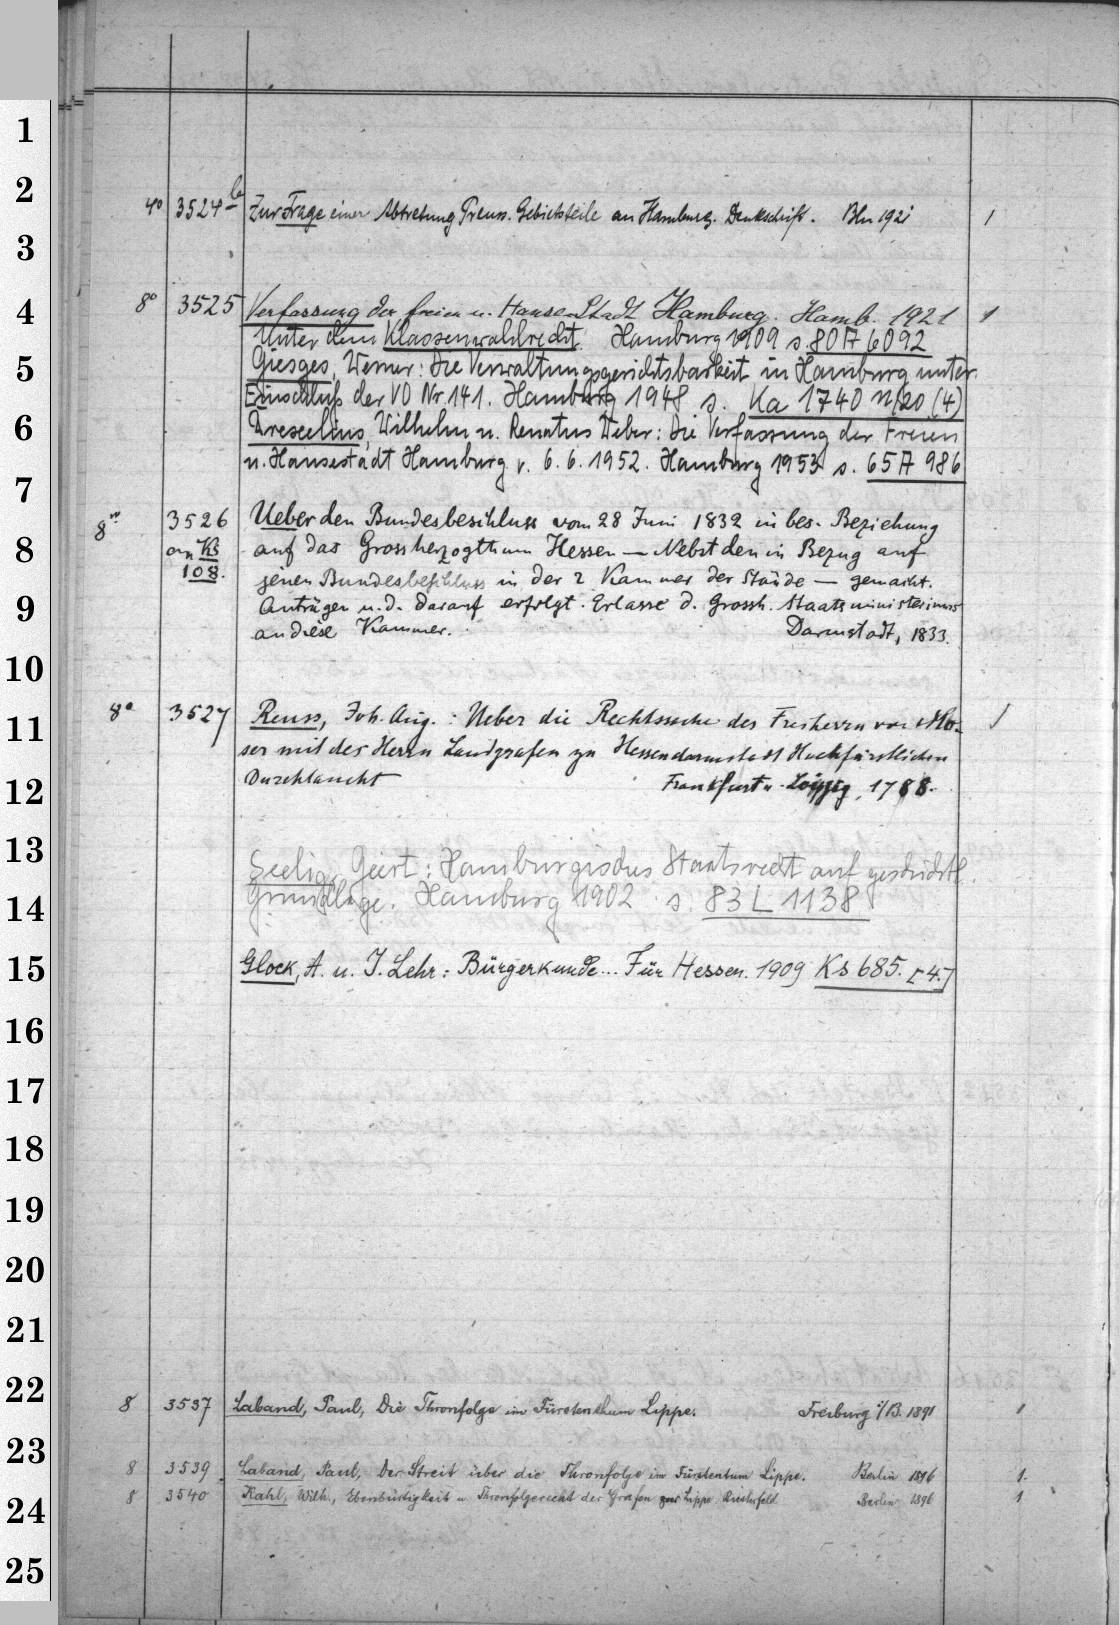 1
2
4° 3524 b Zur Frage einer Abtretung Preuss. Gebietsteile an Hamburg. Denkschrift. Bln 1921 1
3
4
8° 3525 Verfassung der freien u. Hansestadt Hamburg. Hamb. 1921 1
Unter dem Klassenwahlrecht. Hamburg 1909 s. 80 A 6092
5
Giesges, Werner: Die Verwaltungsgerichtsbarkeit in Hamburg unter
Einschluß der VO Nr. 141. Hamburg 1948 s. Ka 1740 n/20 (4)
6
Drexelius, Wilhelm u. Renatus Weber: Die Verfassung der Freien
u. Hansestadt Hamburg v. 6.6.1952. Hamburg 1953 s. 65 A 986
7
8° 3526 Ueber den Bundesbeschluss vom 28 Juni 1832 in bes. Beziehung
8
an Ks auf das Grossherzogthum Hessen — Nebst den in Bezug auf
108. jenen Bundesbeschluss in der 2 Kammer der Stände — gemacht.
9
Anträgen u. d. darauf erfolgt. Erlasse d. Grossh. Staatsministeriums
an diese Kammer. Darmstadt, 1833.
10
11
8° 3527 Reuss, Joh. Aug. : Ueber die Rechtssache des Freiherrn von Mo-
ser mit des Herrn Landgrafen zu Hessendarmstadt Hochfürstlichen
12
Durchlaucht Frankfurt u. Leipzig, 1788. 1
13
Seelig, Geert: Hamburgisches Staatsrecht auf geschichtl.
14
Grundlage. Hamburg 1902 s. 83 L 1138
15
Glock, A. u. J. Lehr: Bürgerkunde... Für Hessen. 1909 Ks 685. [4.]
16
17
18
19
20
21
22
8 3537 Laband, Paul, Die Thronfolge im Fürstenthum Lippe. Freiburg i/B. 1891 1
23
8 3539. Laband, Paul, Der Streit über die Thronfolge im Fürstentum Lippe. Berlin 1896 1.
24
8 3540 Kahl, Wilh., Ebenbürtigkeit u Thronfolgerecht der Grafen zur Lippe-Biesterfeld Berlin 1896 1
25